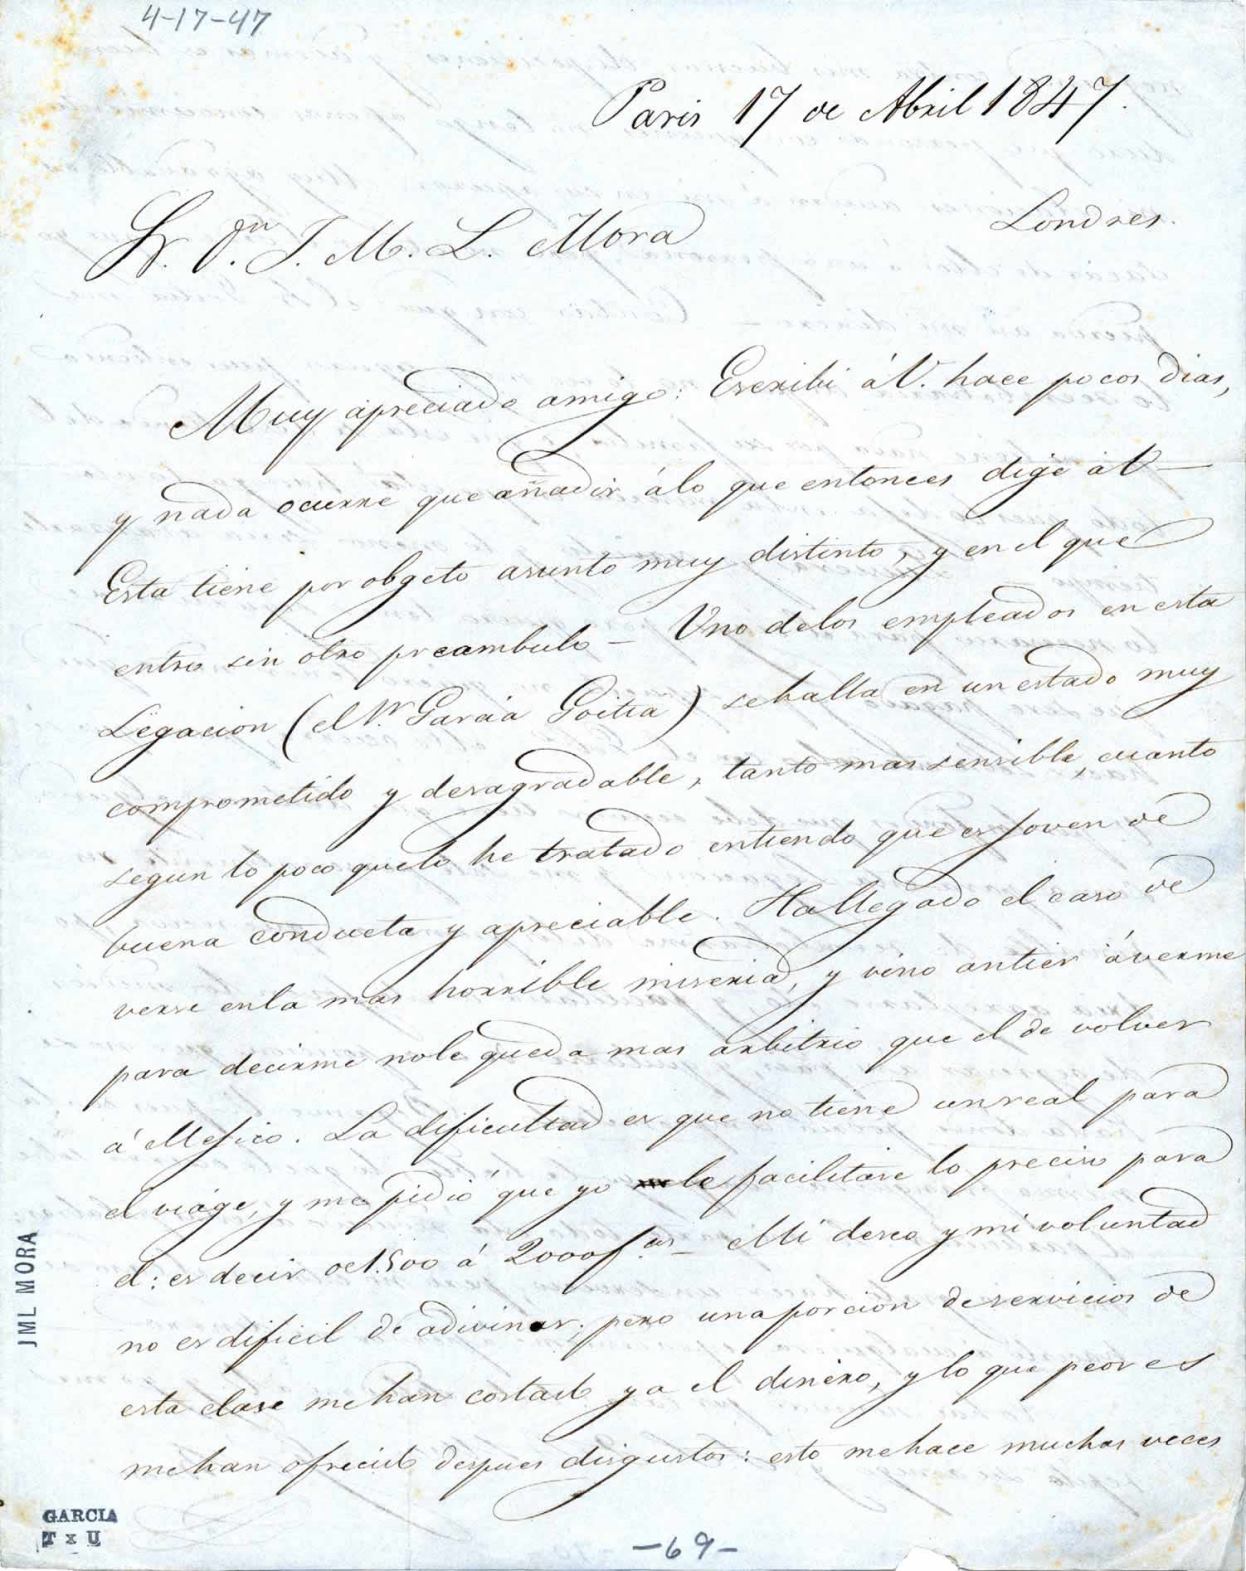 4-17-47
Paris 17 de Abril 1847.
Londres.
Sr. Dn. J. M. L. Mora
Muy apreciado amigo: Escribi á V. hace pocos dias,
y nada ocurre que añadir á lo que entonces dige á V—
Esta tiene por obgeto asunto muy distinto, y en el que
entro sin otro preambulo — Uno de los empleados en esta
Legacion (el Sr Garcia Goitia) se halla en un estado muy
comprometido y desagradable, tanto mas sensible, cuanto
segun lo poco que lo he tratado entiendo que es joven de
buena conducta y apreciable. Ha llegado el caso de
verse en la mas horrible miseria, y vino antier á verme
para decirme no le queda mas arbitrio que el de volver
á Mejico. La dificultad es que no tiene un real para
el viage, y me pidió que yo le facilitase lo preciso para
el: es decir de 1.500 á 2000 f.cos — Mi deseo y mi voluntad
no es dificil de adivinar; pero una porcion de servicios de
esta clase me han costado ya el dinero, y lo que peor es
me han ofrecido despues disgustos: esto me hace muchas veces
JML MORA
GARCIA
T x U
-69-